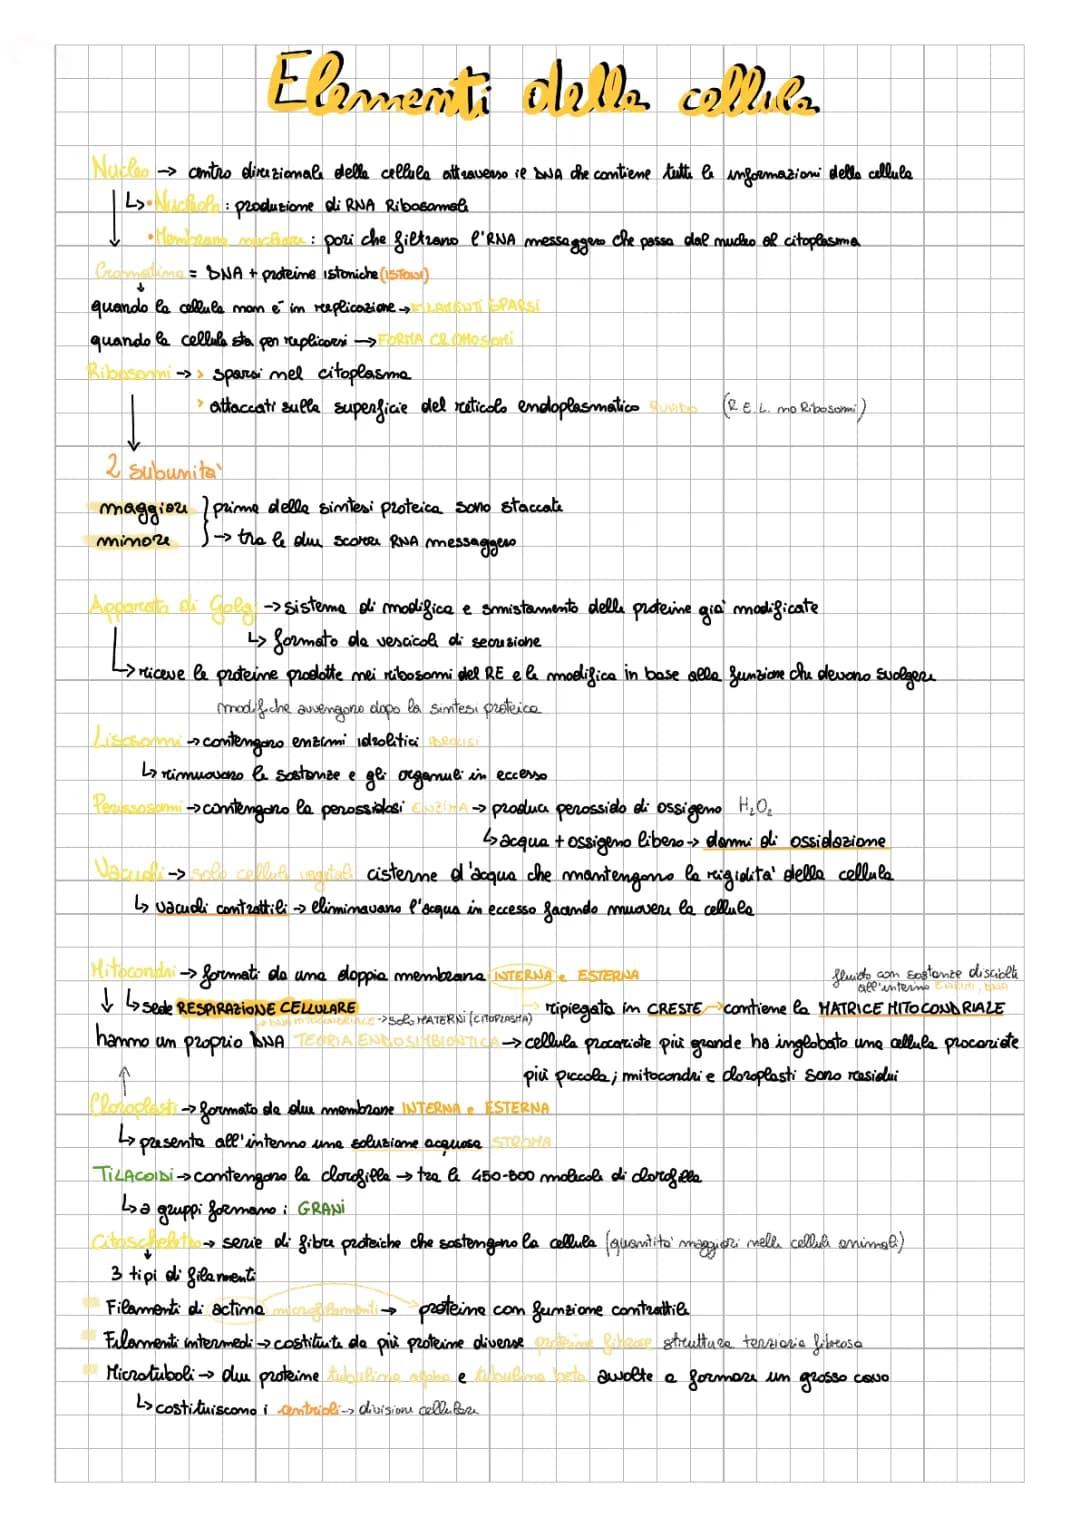 Elementi della cellula
Nucleo → centro direzionale della cellula attraverso il DNA che contiene tutte le informazioni della cellula
↳ • Nucleolo : produzione di RNA Ribosomale
• Membrana nucleare : pori che filtrano l'RNA messaggero che passa dal nucleo al citoplasma
Cromatina = DNA + proteine istoniche (ISTONI)
quando la cellula non è in replicazione → FILAMENTI SPARSI
quando la cellula sta per replicarsi → FORMA CROMOSOMI
Ribosomi → > sparsi nel citoplasma
> attaccati sulla superficie del reticolo endoplasmatico RUVIDO (R.E.L. no Ribosomi)
2 subunità
maggiore } prima della sintesi proteica sono staccate
minore → tra le due scorre RNA messaggero
Apparato di Golgi → sistema di modifica e smistamento delle proteine già modificate
↳ formato da vescicole di secrezione
↳ riceve le proteine prodotte nei ribosomi del RE e le modifica in base alla funzione che devono svolgere
modifiche avvengono dopo la sintesi proteica
Lisosomi → contengono enzimi idrolitici IDROLISI
↳ rimuovono le sostanze e gli organuli in eccesso
Perissosomi → contengono la perossidasi ENZIMA → produce perossido di ossigeno H₂O₂
↳ acqua + ossigeno libero → danni di ossidazione
Vacuoli → solo cellule vegetali cisterne d'acqua che mantengono la rigidità della cellula
↳ vacuoli contrattili → eliminavano l'acqua in eccesso facendo muovere la cellula
Mitocondri → formati da una doppia membrana INTERNA e ESTERNA
fluido con sostanze disciolte
all'interno ENZIMI, DNA
↳ Sede RESPIRAZIONE CELLULARE → ripiegata in CRESTE → contiene la MATRICE MITOCONDRIALE
DNA MITOCONDRIALE → SOLO MATERNI (CITOPLASMA)
hanno un proprio DNA TEORIA ENDOSIMBIONTICA → cellula procariote più grande ha inglobato una cellula procariote
più piccola; mitocondri e cloroplasti sono residui
Cloroplasti → formato da due membrane INTERNA e ESTERNA
↳ presenta all'interno una soluzione acquosa STROMA
TILACOIDI → contengono la clorofilla → tra le 450-800 molecole di clorofilla
↳ a gruppi formano i GRANI
Citoscheletro → serie di fibre proteiche che sostengono la cellula (quantità maggiori nelle cellule animali)
3 tipi di filamenti
Filamenti di actina microfilamenti → proteina con funzione contrattile
Filamenti intermedi → costituite da più proteine diverse proteine fibrose struttura terziaria fibrosa
Microtuboli → due proteine tubulina alpha e tubulina beta avvolte a formare un grosso cavo
↳ costituiscono i centrioli → divisione cellulare